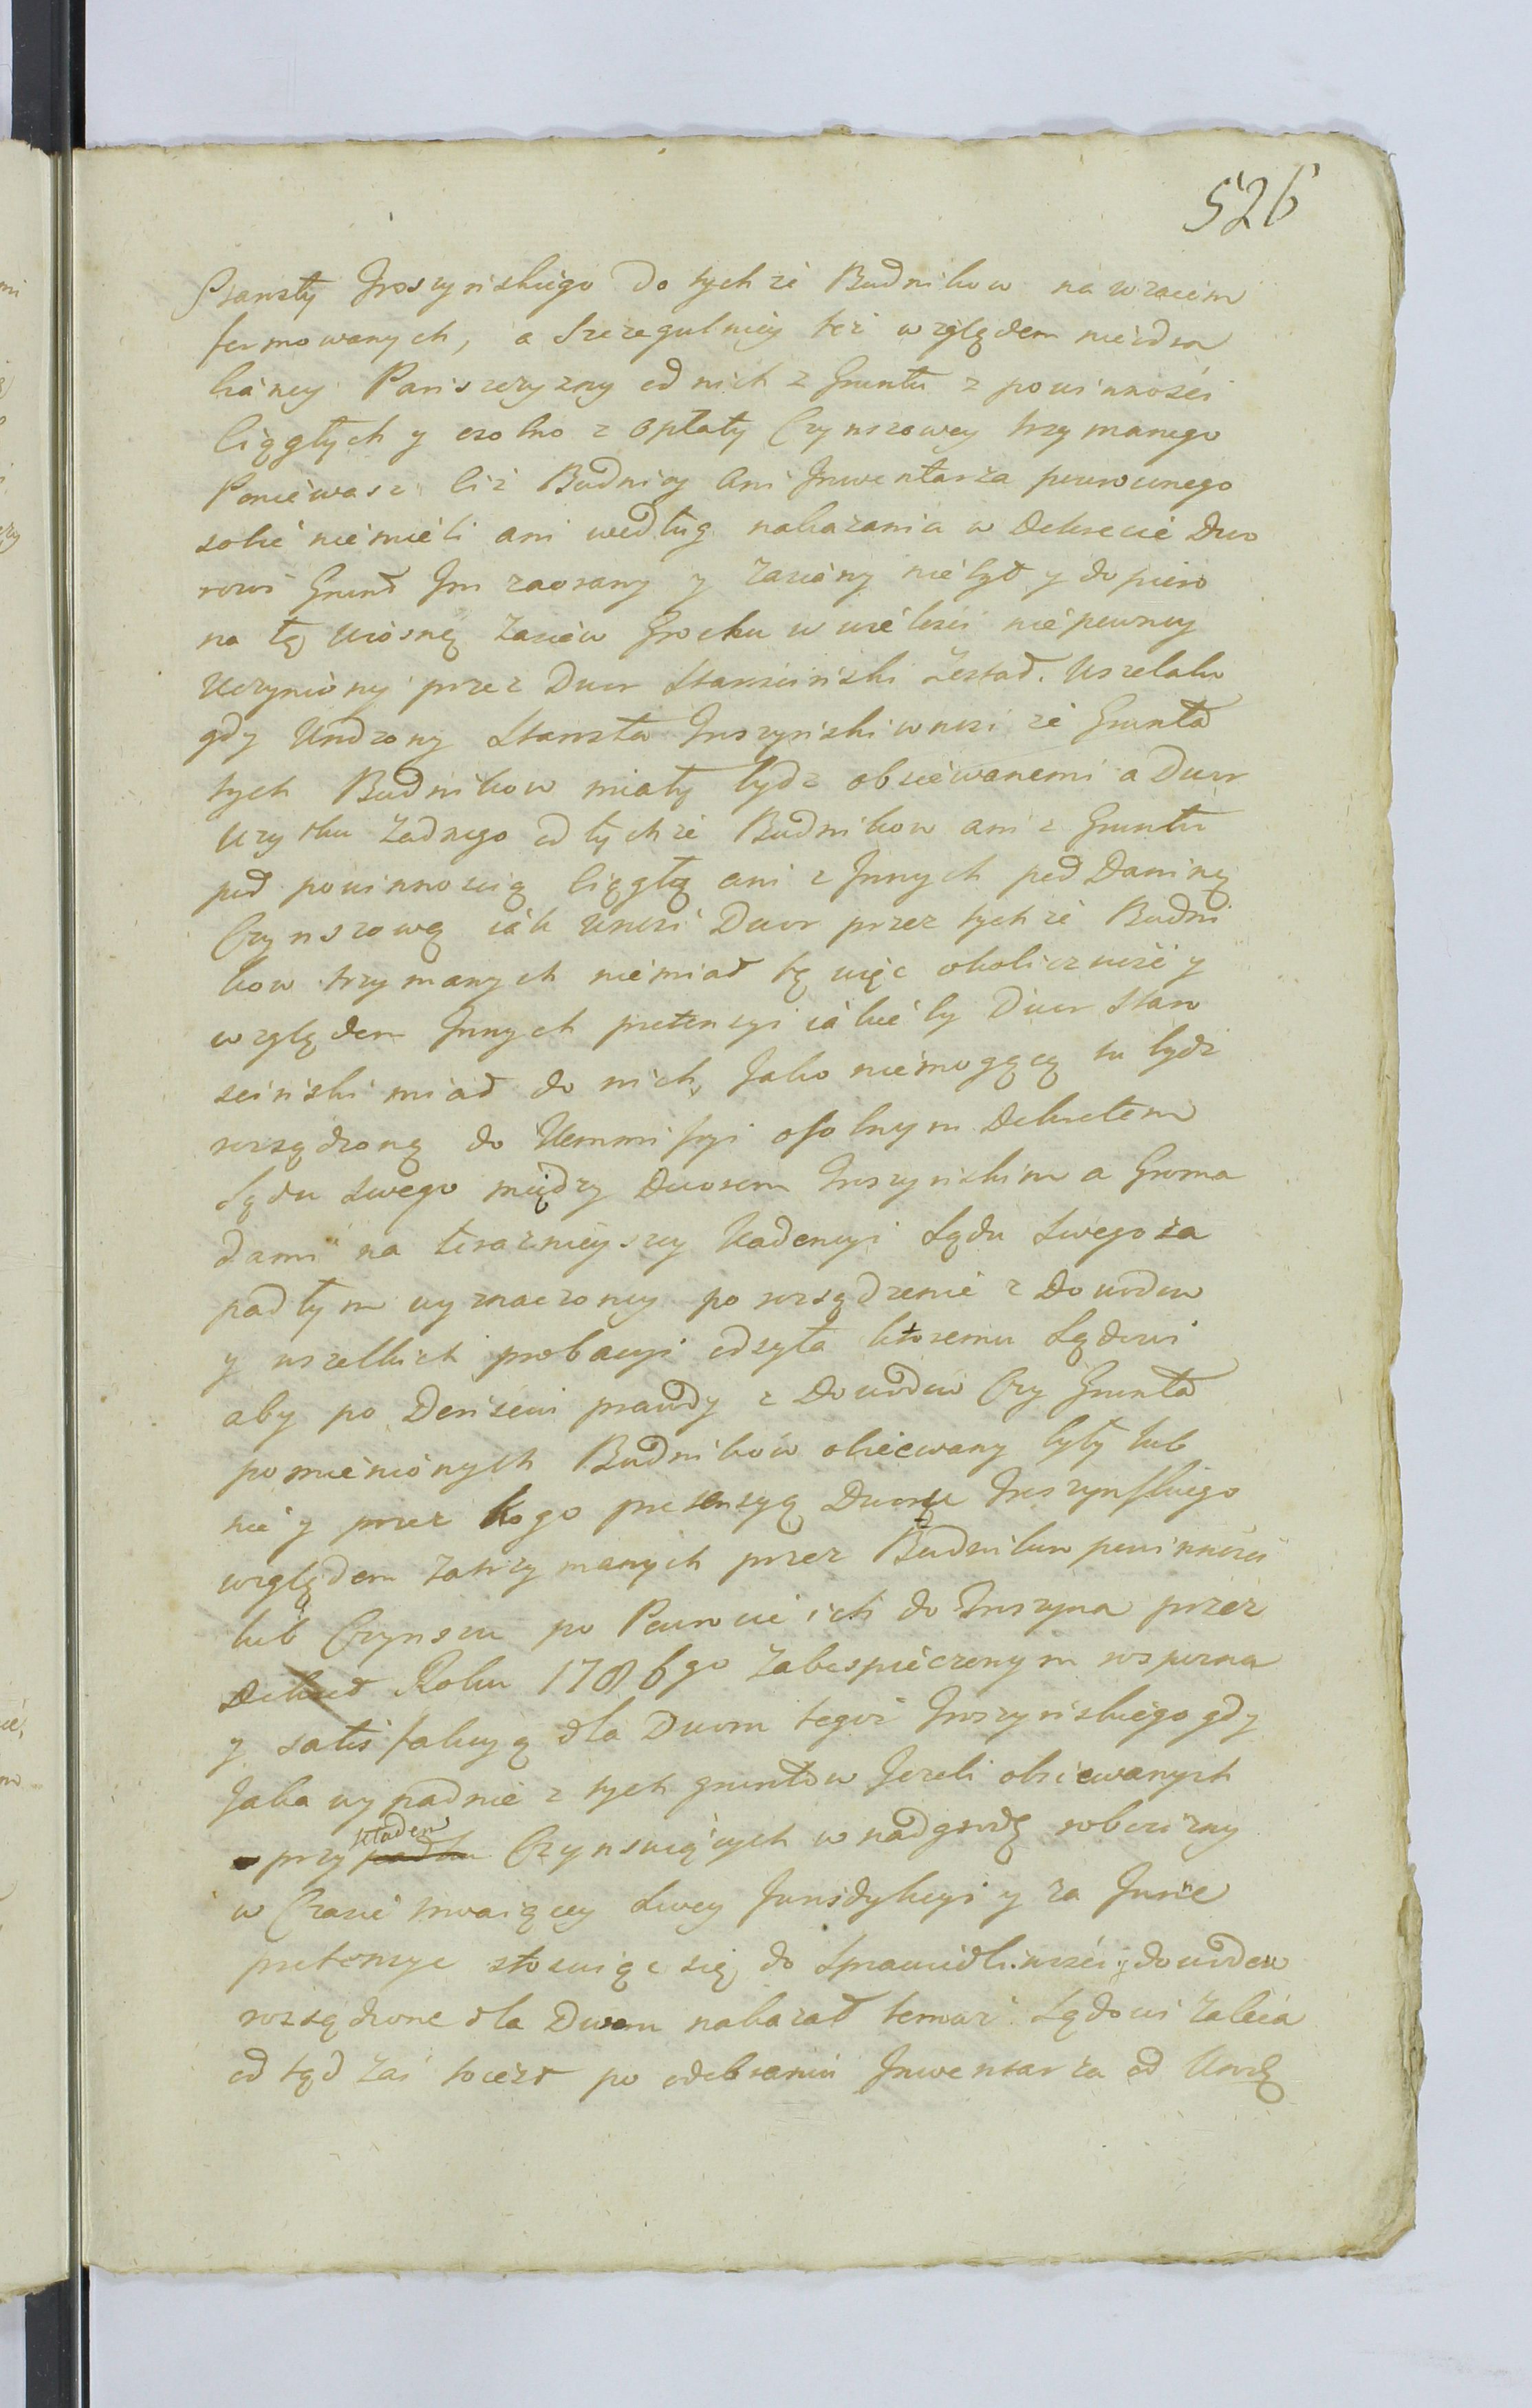 526
Starosty Jnszyńskiego do tychże Budnikow nawzaiem
formowanych, a Szczegulniey też względem niezdra
bianey Panszczyzny od nich z Gruntu z powinności
Ciągłych y osobno z Opłaty Czynszowey trzymanego
Ponieważ Ciż Budnicy Ani Jnwentarza powrocnego
sobie niemieli ani według nakazania w Dekrecie Dwo
rowi Grunt Jm zaorany y Zasiany niebył y dopiero
na tę wiosnę Zasiew Grochu w wielości niepewney
Uczyniony przez Dwor Starościński Został. Wszelako
gdy Urodzony Starosta Jnszyński wnosi że Grunta
tych Budnikow miały bydź obsiewanemi a Dwor
Uzysku Żadnego od tychże Budnikow ani z Gruntu
pod powinnością Ciągłą ani z Jnnych pod Daniną
Czynszową iak wnosi Dwor przez tychże Budni
kow trzymanych niemiał tę więc okoliczność y
względem Jnnych pretensyi iakieby Dwor Staro
ściński miał do nich, Jako niemogącą tu bydź
rozsądzoną do Kommissyi osobnym Dekretem
Sądu swego między Dworem Jnszyńskim a Groma
dami na teraźnieyszey Kadencyi Sądu Swego za
padłym wyznaczoney po rozsądzenie z Dowodow
y wszelkich probacyi odsyła ktoremu Sądowi
aby po Doyściu prawdy z Dowodow Czy Grunta
pomienionych Budnikow obsiewany były lub
nie y przez kogo pretensyą Dworu Jnszynskiego
względem Zatrzymanych przez Budnikow powinności
lub Czynszu po Powrocie ich do Jnszyna przez
Dekret Roku 1786go Zabespieczonym rozpoznał
y satisfakcyą dla Dworu tegoż Jnszyńskiego gdy
Jaka wypadnie z tych gruntow Jezeli obsiewanych
przy kładem Czynszuiących w nadgrodę robocizny
w Czasie trwaiącey Swey Jurisdykcyi y za Jnne
pretensye stosuiąc się do Sprawiedliwości y dowodow
rozsądzone dla Dworu nakazał temuż Sądowi Zaleca
od tąd zaś to iest po odebraniu Jnwentarza od Urodz